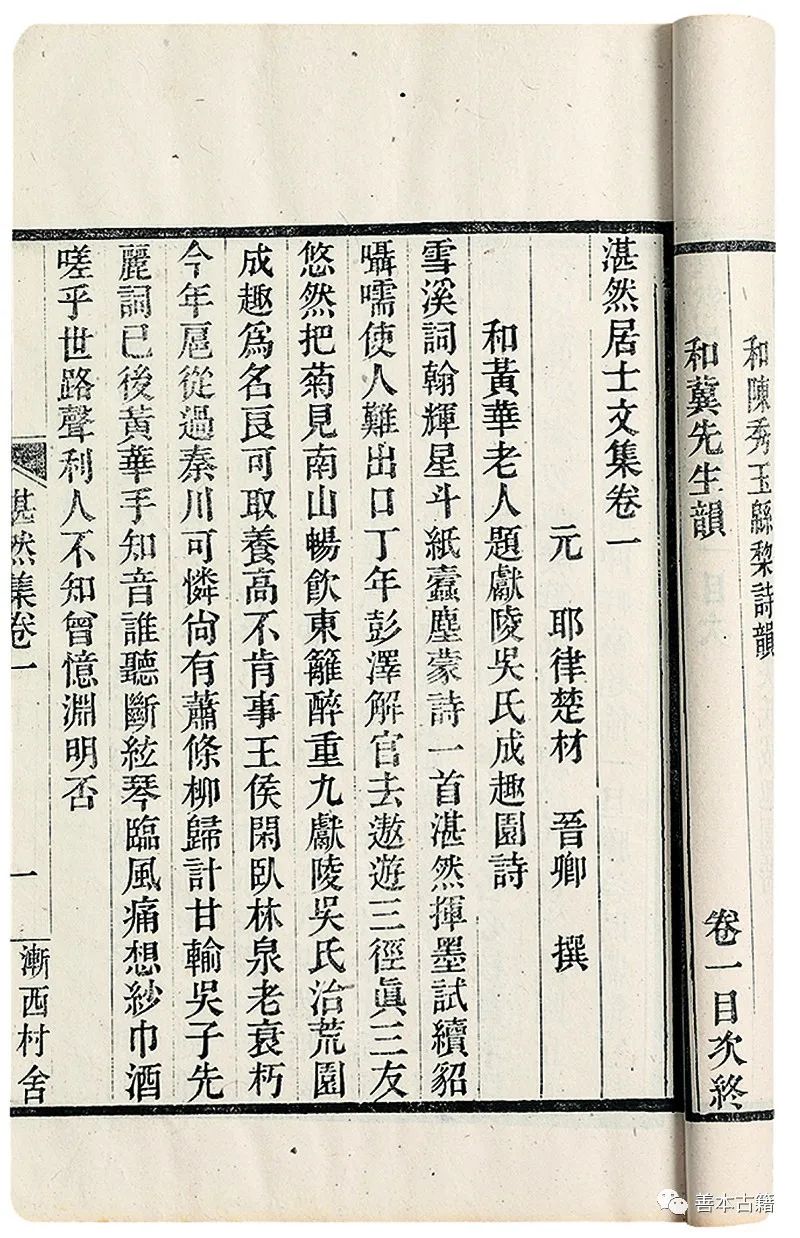 和陳秀玉緜棃詩韻
和冀先生韻
卷一目次終
湛然居士文集卷一
元 耶律楚材 晉卿 撰
和黃華老人題獻陵吳氏成趣園詩
雪溪詞翰輝星斗紙蠧塵蒙詩一首湛然揮墨試續貂
囁嚅使人難出口丁年彭澤解官去遨遊三徑眞三友
悠然把菊見南山暢飮東籬醉重九獻陵吳氏治荒園
成趣爲名良可取養高不肯事王侯閑臥林泉老衰朽
今年扈從過秦川可憐尙有蕭條柳歸計甘輸吳子先
麗詞已後黃華手知音誰聽斷絃琴臨風痛想紗巾酒
嗟乎世路聲利人不知曾憶淵明否
湛然集卷一
一
漸西村舍
善本古籍